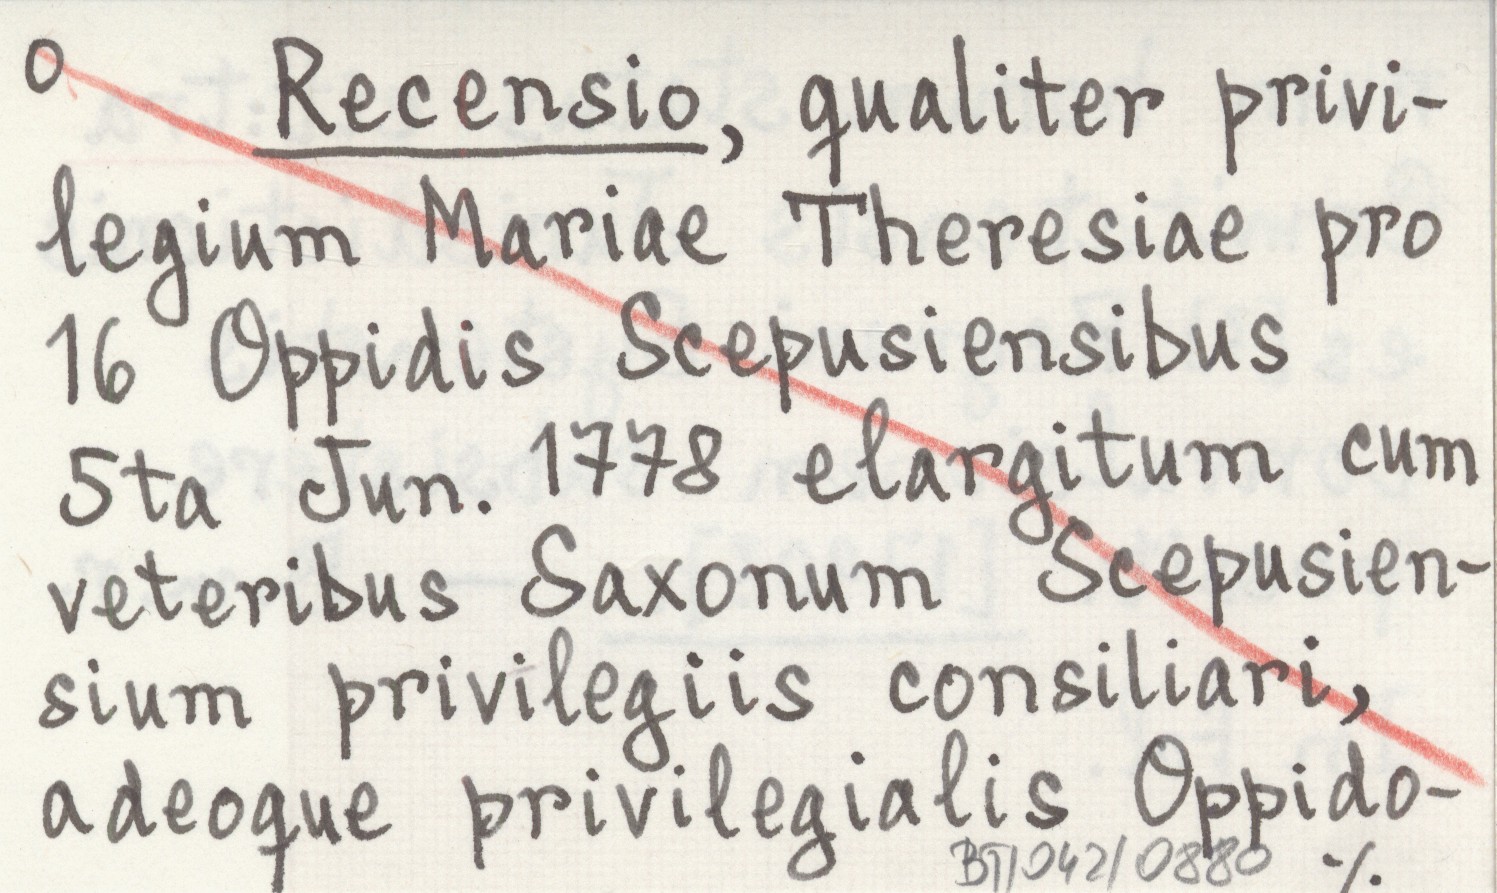 o Recensio, qualiter privi-
legium Mariae Theresiae pro
16 Oppidis Scepusiensibus
5ta Jun. 1778 elargitum cum
veteribus Saxonum Scepusien-
sium privilegiis consiliari,
adeoque privilegialis Oppido-
BT/042/0880 ·/.